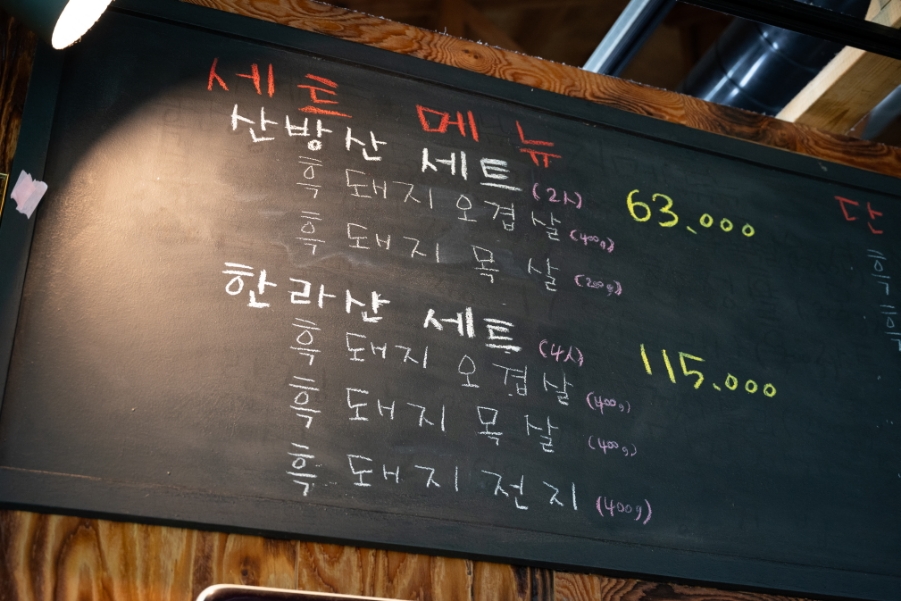 세트 메뉴
산방산 세트 (2人) 63.000
흑돼지 오겹살 (400g)
흑돼지 목살 (200g)
한라산 세트 (4人) 115.000
흑돼지 오겹살 (400g)
흑돼지 목살 (400g)
흑돼지 전지 (400g)
단
흑